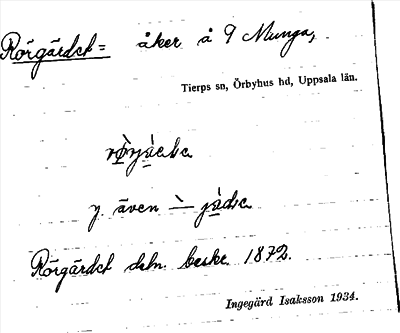 Rörgärdet = åker å 9 Munga,
Tierps sn, Örbyhus hd, Uppsala län.
y. även
Rörgärdet dsbn. beskr. 1872.
Ingegärd Isaksson 1934.